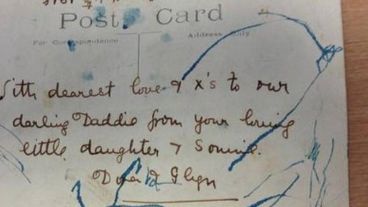 Post Card
For Correspondence Address Only
With dearest love & x's to our
darling Daddie from your loving
little daughter & Sonnie.
& Glyn